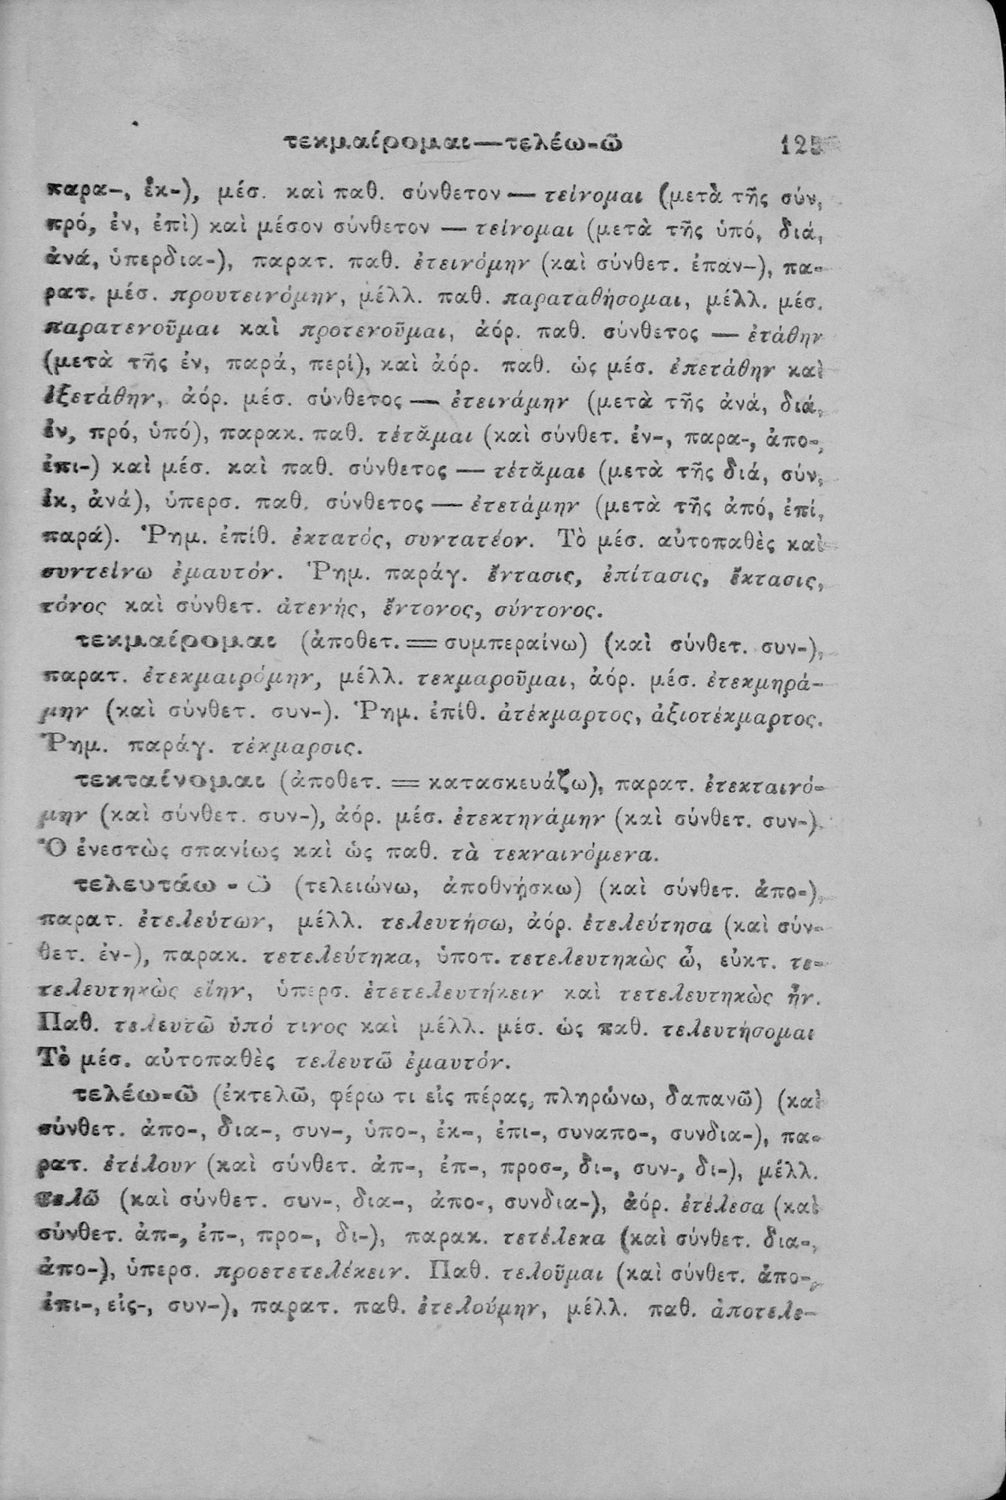 τεκμαίρομαι—τελέω-ῶ 125
παρα-, ἐκ-), μέσ. καὶ παθ. σύνθετον — τείνομαι (μετὰ τῆς σύν,
πρό, ἐν, ἐπὶ) καὶ μέσον σύνθετον — τείνομαι (μετὰ τῆς ὑπό, διά,
ἀνά, ὑπερδια-), παρατ. παθ. ἐτεινόμην (καὶ σύνθετ. ἐπαν-), πα-
ρατ. μέσ. προυτεινόμην, μέλλ. παθ. παραταθήσομαι, μέλλ. μέσ.
παρατενοῦμαι καὶ προτενοῦμαι, ἀόρ. παθ. σύνθετος — ἐτάθην
(μετὰ τῆς ἐν, παρά, περί), καὶ ἀόρ. παθ. ὡς μέσ. ἐπετάθην καὶ
ἐξετάθην, ἀόρ. μέσ. σύνθετος — ἐτεινάμην (μετὰ τῆς ἀνά, διά,
ἐν, πρό, ὑπό), παρακ. παθ. τέτᾰμαι (καὶ σύνθετ. ἐν-, παρα-, ἀπο-,
ἐπι-) καὶ μέσ. καὶ παθ. σύνθετος — τέτᾰμαι (μετὰ τῆς διά, σύν,
ἐκ, ἀνά), ὑπερσ. παθ. σύνθετος — ἐτετάμην (μετὰ τῆς ἀπό, ἐπί,
παρά). Ῥημ. ἐπίθ. ἐκτατός, συντατέον. Τὸ μέσ. αὐτοπαθὲς καὶ
συντείνω ἐμαυτόν. Ῥημ. παράγ. ἔντασις, ἐπίτασις, ἔκτασις,
τόνος καὶ σύνθετ. ἀτενής, ἔντονος, σύντονος.
τεκμαίρομαι (ἀποθετ. = συμπεραίνω) (καὶ σύνθετ. συν-),
παρατ. ἐτεκμαιρόμην, μέλλ. τεκμαροῦμαι, ἀόρ. μέσ. ἐτεκμηρά-
μην (καὶ σύνθετ. συν-). Ῥημ. ἐπίθ. ἀτέκμαρτος, ἀξιοτέκμαρτος.
Ῥημ. παράγ. τέκμαρσις.
τεκταίνομαι (ἀποθετ. = κατασκευάζω), παρατ. ἐτεκταινό-
μην (καὶ σύνθετ. συν-), ἀόρ. μέσ. ἐτεκτηνάμην (καὶ σύνθετ. συν-).
Ὁ ἐνεστὼς σπανίως καὶ ὡς παθ. τὰ τεκναινόμενα.
τελευτάω - ῶ (τελειώνω, ἀποθνήσκω) (καὶ σύνθετ. ἀπο-),
παρατ. ἐτελεύτων, μέλλ. τελευτήσω, ἀόρ. ἐτελεύτησα (καὶ σύν-
θετ. ἐν-), παρακ. τετελεύτηκα, ὑποτ. τετελευτηκὼς ὦ, εὐκτ. τε-
τελευτηκὼς εἴην, ὑπερσ. ἐτετελευτήκειν καὶ τετελευτηκὼς ἦν.
Παθ. τελευτῶ ὑπό τινος καὶ μέλλ. μέσ. ὡς παθ. τελευτήσομαι
Τὸ μέσ. αὐτοπαθὲς τελευτῶ ἐμαυτόν.
τελέω-ῶ (ἐκτελῶ, φέρω τι εἰς πέρας, πληρώνω, δαπανῶ) (καὶ
σύνθετ. ἀπο-, δια-, συν-, ὑπο-, ἐκ-, ἐπι-, συναπο-, συνδια-), πα-
ρατ. ἐτέλουν (καὶ σύνθετ. ἀπ-, ἐπ-, προσ-, δι-, συν-, δι-), μέλλ.
τελῶ (καὶ σύνθετ. συν-, δια-, ἀπο-, συνδια-), ἀόρ. ἐτέλεσα (καὶ
σύνθετ. ἀπ-, ἐπ-, προ-, δι-), παρακ. τετέλεκα (καὶ σύνθετ. δια-,
ἀπο-), ὑπερσ. προετετελέκειν. Παθ. τελοῦμαι (καὶ σύνθετ. ἀπο-,
ἐπι-, εἰς-, συν-), παρατ. παθ. ἐτελούμην, μέλλ. παθ. ἀποτελε-